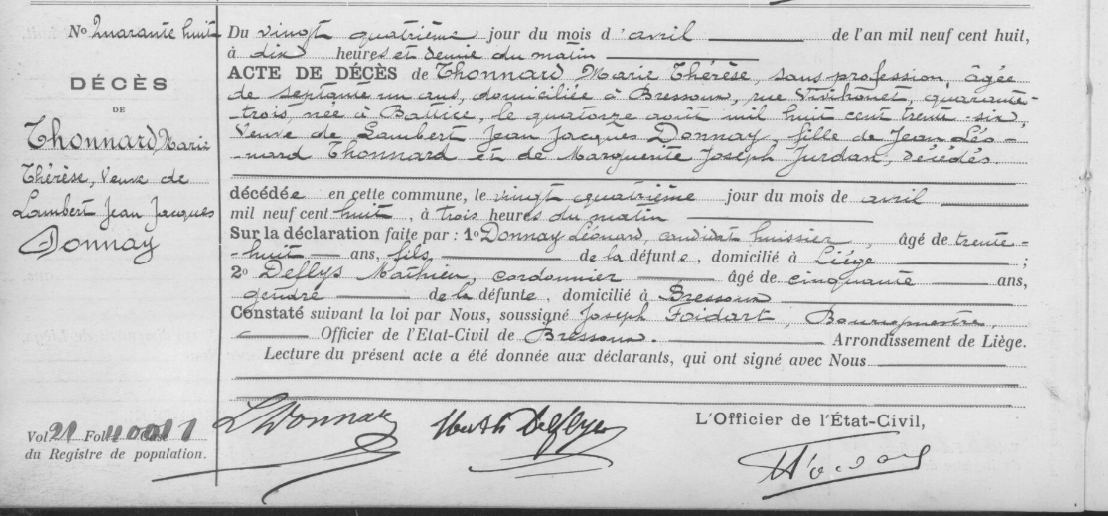 N° Quarante huit
DÉCÈS
DE
Thonnard Marie
Thérèse, Veuve de
Lambert Jean Jacques
Donnay
Du vingt quatrième jour du mois d'avril de l'an mil neuf cent huit,
à dix heures et demie du matin
ACTE DE DÉCÈS de Thonnard Marie Thérèse, sans profession, âgée
de septante un ans, domiciliée à Bressoux, rue quarante-
trois, née à Battice, le quatorze août mil huit cent trente-six,
Veuve de Lambert Jean Jacques Donnay, fille de Jean Léo-
-nard Thonnard et de Marguerite Joseph Jurdan, décédés.
décédée en cette commune, le vingt quatrième jour du mois de avril
mil neuf cent huit, à trois heures du matin
Sur la déclaration faite par : 1° Donnay Léonard, candidat huissier, âgé de trente-
-huit ans, fils, de la défunte, domicilié à Liège ;
2° Deflys Mathieu, cordonnier âgé de cinquante ans,
gendre de la défunte, domicilié à Bressoux
Constaté suivant la loi par Nous, soussigné Joseph Foidart, Bourgmestre,
Officier de l'Etat-Civil de Bressoux. Arrondissement de Liège.
Lecture du présent acte a été donnée aux déclarants, qui ont signé avec Nous
Vol 21 Fol
du Registre de population.
L Donnay
L'Officier de l'État-Civil,